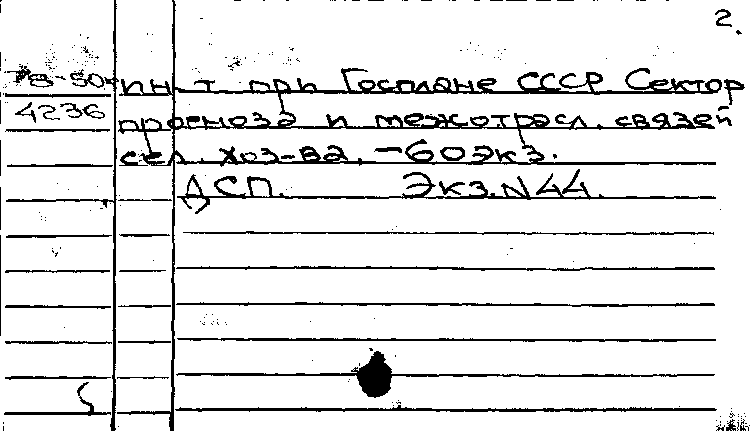 2.
78-50 ин-т при Госплане СССР Сектор
4236 прогноза и межотрасл. связей
сел. хоз-ва. -60экз.
ДСП. Экз.N44.